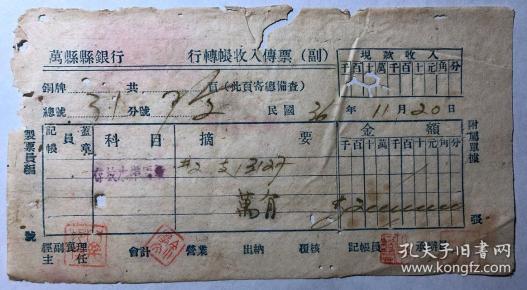 萬縣縣銀行 行轉帳收入傳票（副）
現款收入
千百十萬千百十元角分
銅牌 共 頁（此頁寄總備查）
總號 31 分號 民國 36 年 11 月 20 日
記帳員 蓋章 科目 摘要 金額
千百十萬千百十元角分
附屬單據
製票員編
#2 支 13127
萬育
張
號
經副襄理主任 會計 營業 出納 覆核 記帳員
孔夫子旧书网
www.kongfz.com